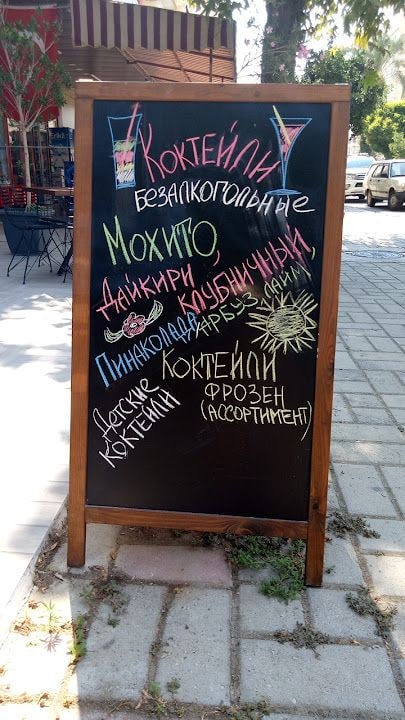 Коктейли
безалкогольные
Мохито,
Дайкири клубничный,
Пинаколада арбуз, лайм
Коктейли
фрозен
(ассортимент)
Детские
коктейли